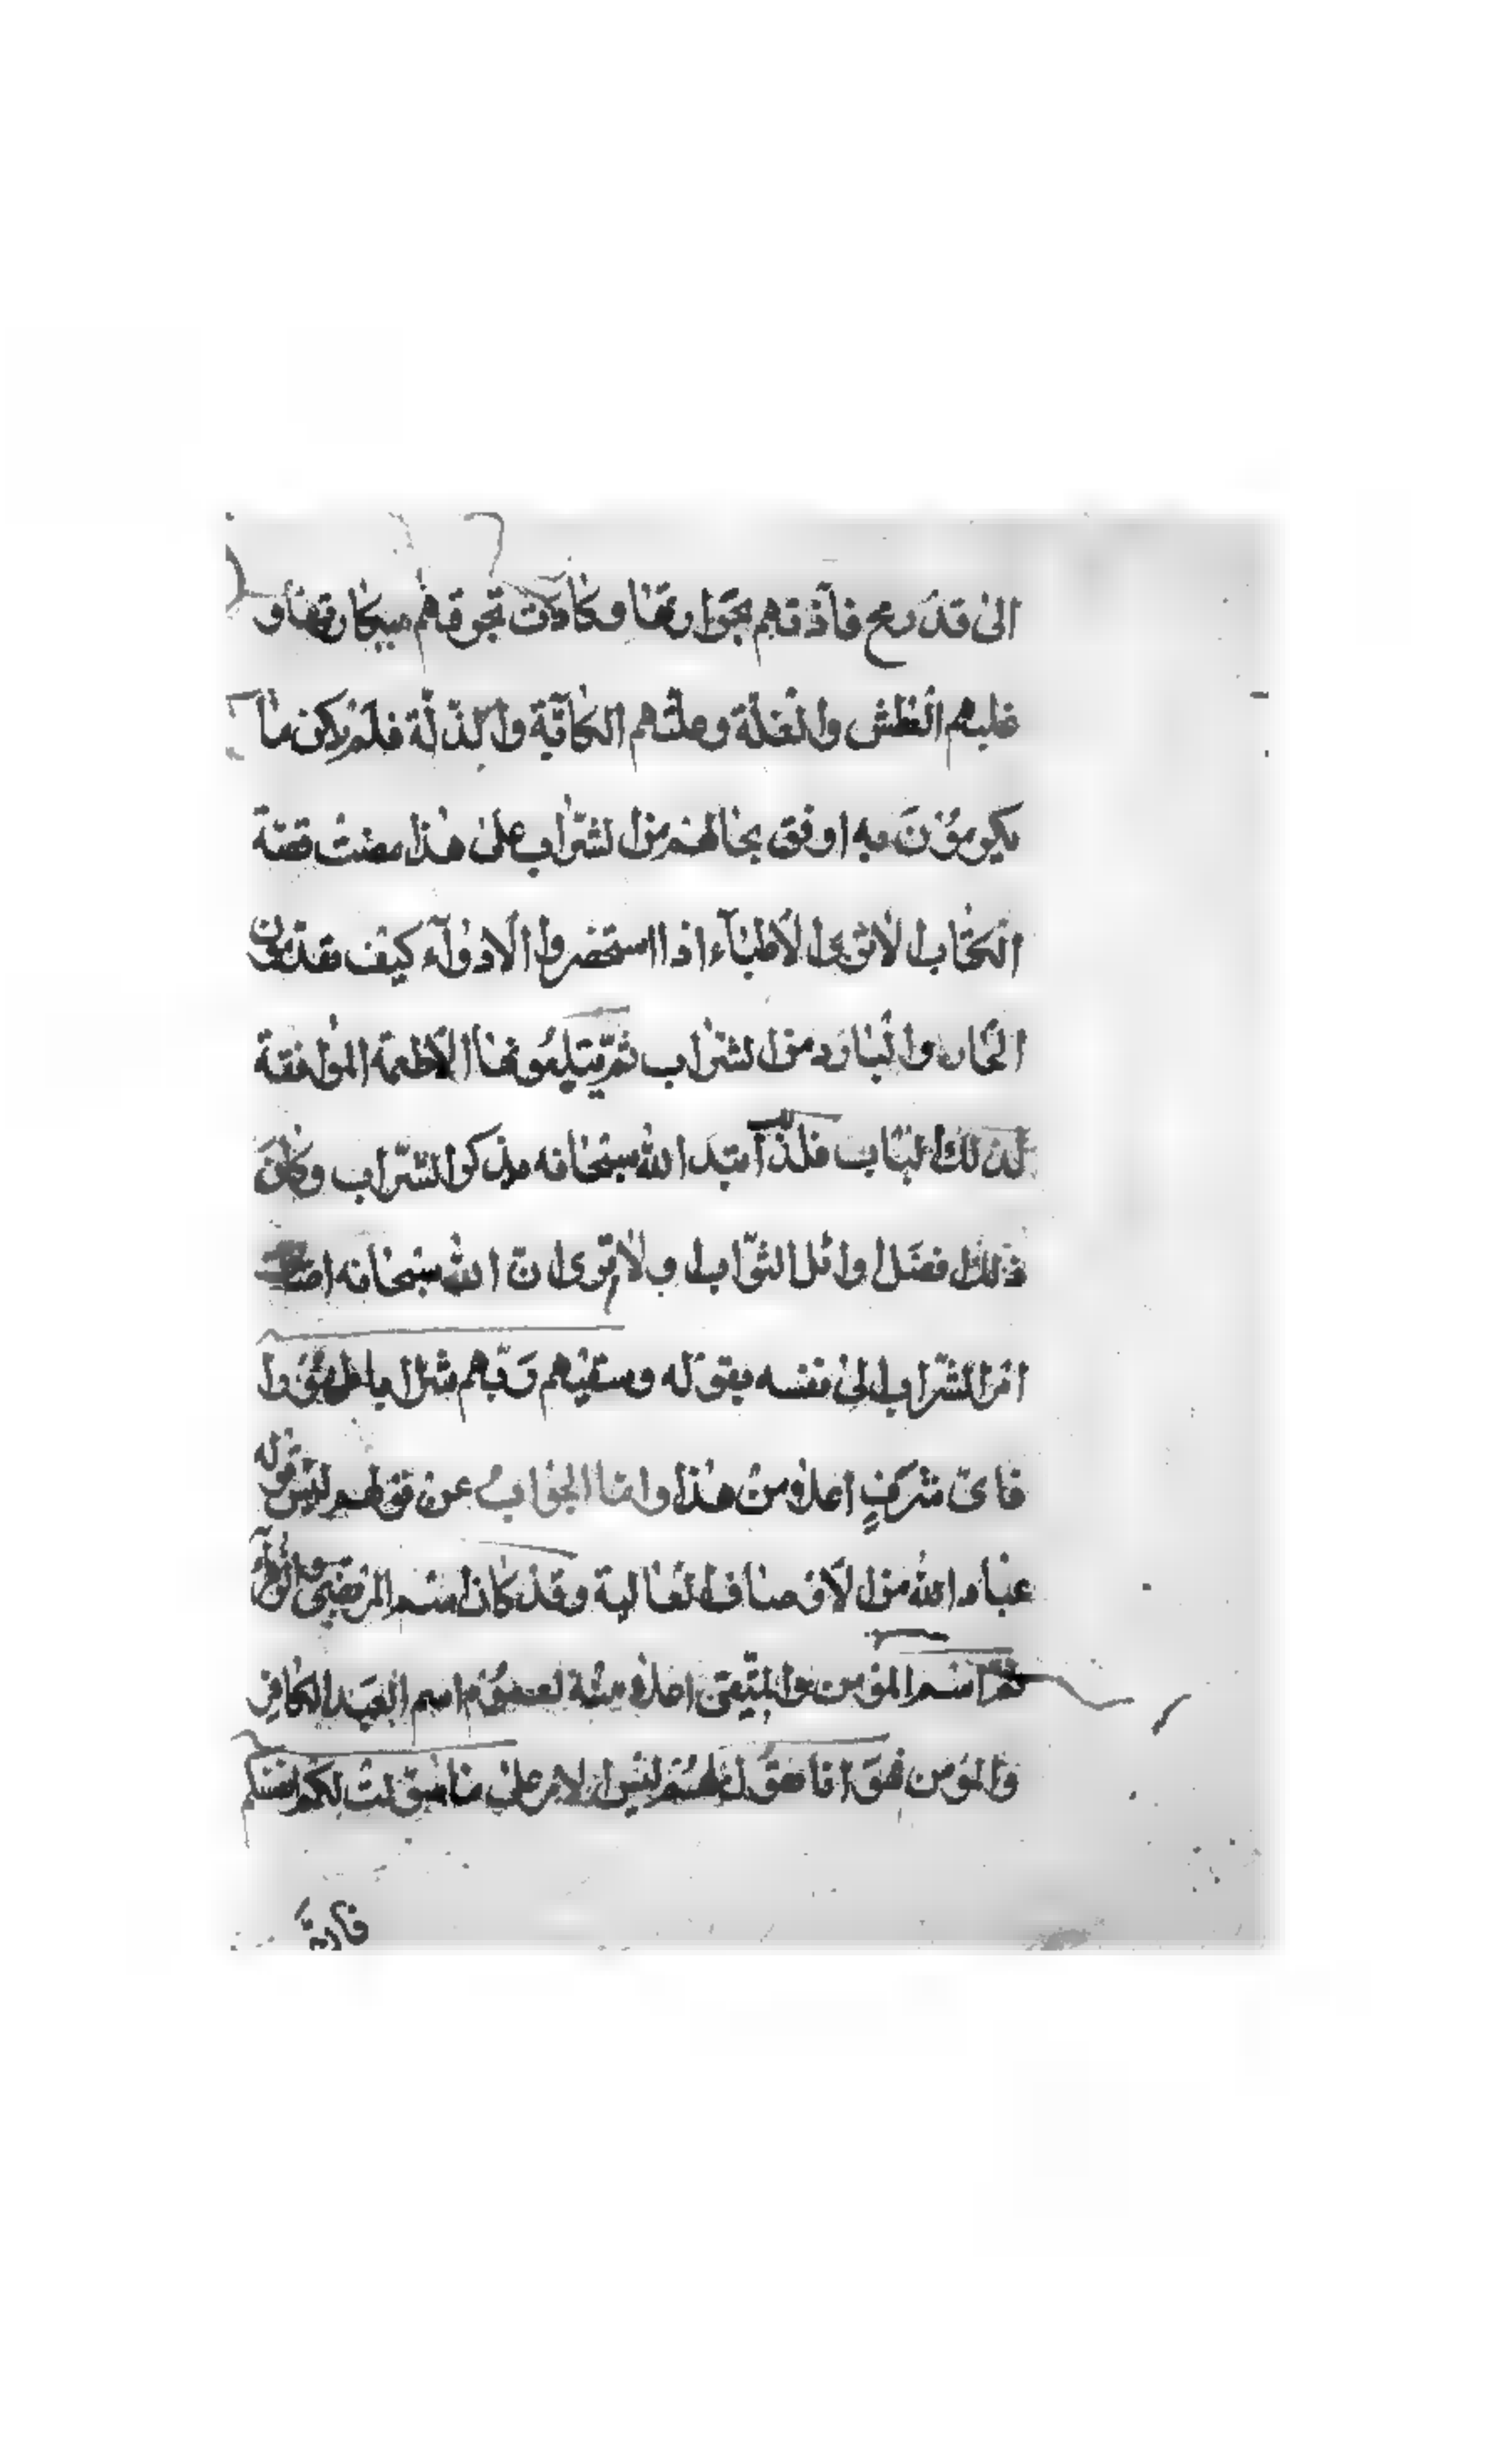 الى قد ريح فآذتهم بحرارتها وكادت تحرقهم بمكارهها و
غلبهم العطش والغلة وعلتهم الكآبة والذلة فلم يكن ما
يكرمون به اوفق بحالهم من الشراب على هذا مضت قصة
الحكماء الا ترى الاطباء اذا استحضروا الادواء كيف يقدمون
الحار والبارد من الشراب ثم يتبعونها الاطعمة الموافقة
لذلك الباب فلذا ابتدا الله سبحانه بذكر الشراب وكان
ذلك افضل اوائل الثواب اولا ترى ان الله سبحانه اضاف
امر الشراب الى نفسه بقوله وسقيهم ربهم شرابا طهورا
فاى شرف اعلى من هذا واما الجواب عن قولهم ليس قوله
عباد الله من الاوصاف العالية وقد كان اسم المرتضى
ثم اسم المؤمن والمتقى اعلى منه لعموم اسم العبد الكافر
والمؤمن فهو انا نقول لهم ليس الامر على ما سولت لكم انفسكم